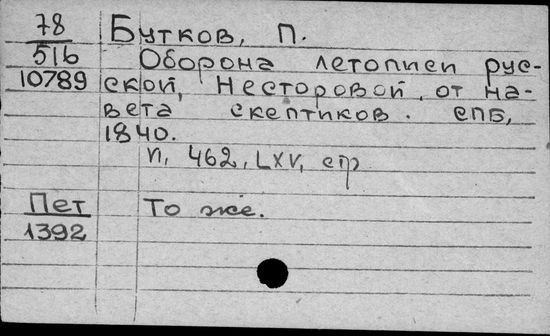 78 Бутков, П.
516 Оборона летописи рус-
10789 ской, Несторовой, от на-
вета скептиков. СПБ,
1840.
П, 462, LXV, стр
Пет То же.
1392